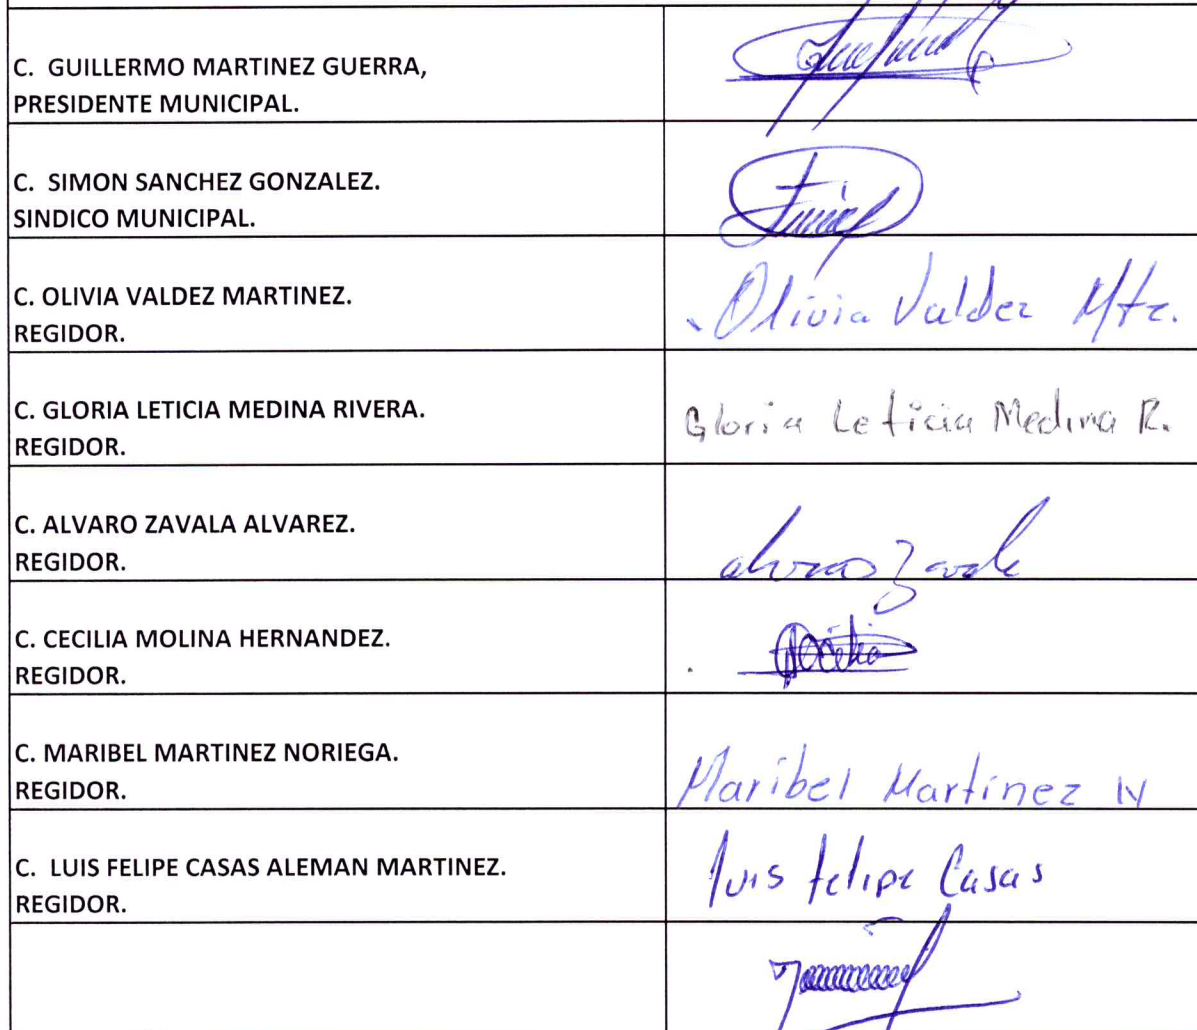 C. GUILLERMO MARTINEZ GUERRA,
PRESIDENTE MUNICIPAL.
C. SIMON SANCHEZ GONZALEZ.
SINDICO MUNICIPAL.
C. OLIVIA VALDEZ MARTINEZ.
REGIDOR.
Olivia Valdez Mtz.
C. GLORIA LETICIA MEDINA RIVERA.
REGIDOR.
Gloria Leticia Medina R.
C. ALVARO ZAVALA ALVAREZ.
REGIDOR.
alvaro Zavala
C. CECILIA MOLINA HERNANDEZ.
REGIDOR.
Cecilia
C. MARIBEL MARTINEZ NORIEGA.
REGIDOR.
Maribel Martinez N
C. LUIS FELIPE CASAS ALEMAN MARTINEZ.
REGIDOR.
luis felipe Casas